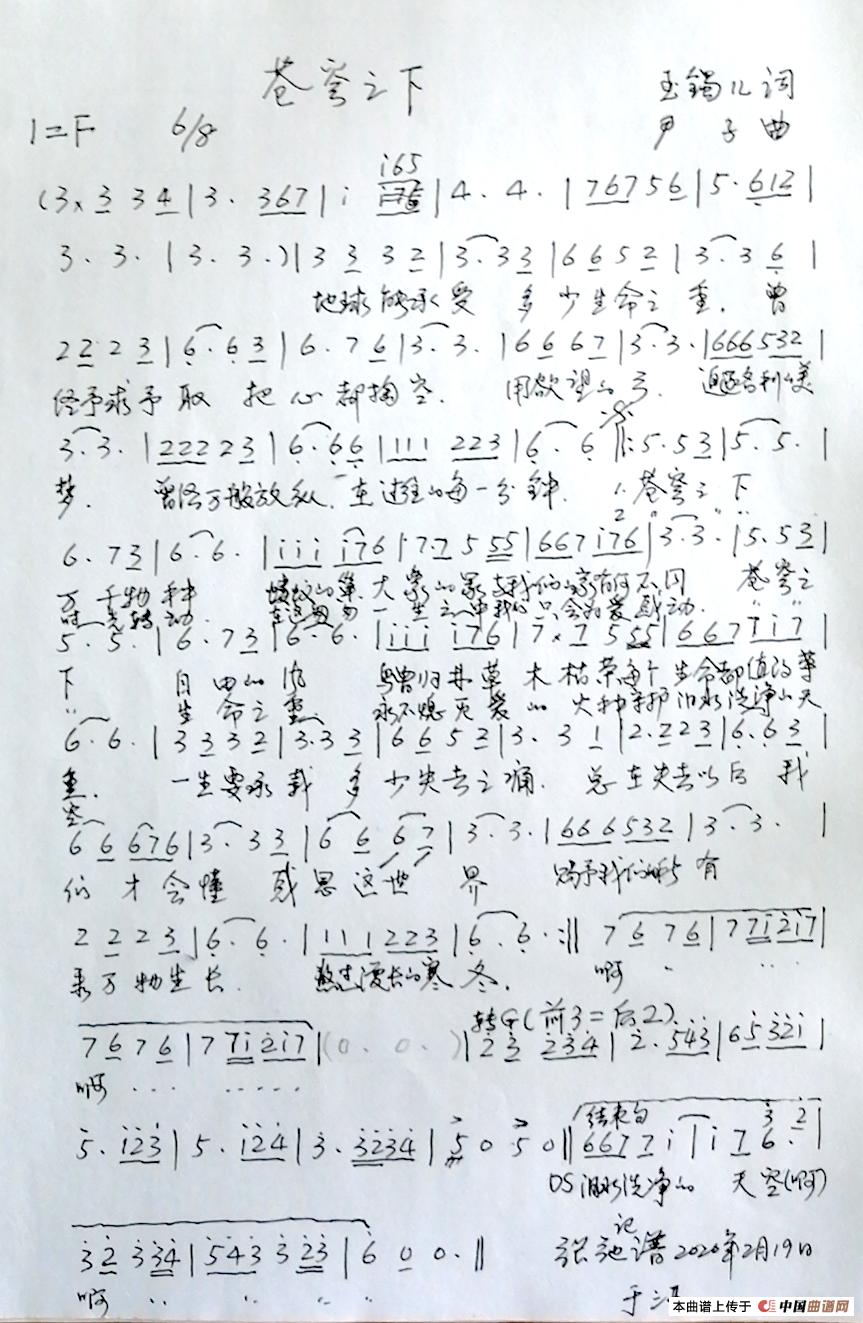 苍穹之下
玉镯儿词
1=F 6/8
尹子曲
(3. 3 3 4 | 3. 367 | i i65 | 4. 4. | 76756 | 5. 612 |
3. 3. | 3. 3. ) | 3 3 3 2 | 3. 33 | 6 6 5 2 | 3. 3 6 |
地球能承受 多少生命之重. 曾
2 2 2 3 | 6. 63 | 6. 7 6 | 3. 3. | 6 6 6 7 | 3. 3. | 666532 |
经予求予取 把心都掏空. 用欲望的弓. 追逐名利的美
3. 3. | 22223 | 6. 66 | 111 223 | 6. 6 ‖: 5. 53 | 5. 5. |
梦. 曾经万般放纵. 在过往的每一分钟. 1. 苍穹之下
6. 73 | 6. 6. | iii i76 | 7. 7 5 55 | 667 i76 | 3. 3. | 5. 53 |
万千物种 大象的 家有何不同 苍穹之
时光转动 一生之中 只会为爱感动. " "
5. 5. | 6. 73 | 6. 6. | iii i76 | 7. 7 5 55 | 667 7i7 |
下 自由的风 草木枯荣每个生命都值得尊
" 生命之重 永不熄灭爱的火种 泪水洗净的天
6. 6. | 3 3 3 2 | 3. 33 | 6 6 5 2 | 3. 3 1 | 2. 223 | 6. 63 |
重. 一生要承载 多少失去之痛. 总在失去以后 我
空
6 6 676 | 3. 3 3 | 6 6 6 7 | 3. 3. | 666532 | 3. 3. |
们才会懂 感恩这世界 赐予我们所有
2 2 2 3 | 6. 6. | 111223 | 6. 6. :‖ 7 6 7 6 | 77i2i7 |
来万物生长. 熬过漫长的寒冬. 啊
转G(前3=后2)
7 6 7 6 | 77i2i7 | (0. 0. ) | 2 3 234 | 2. 543 | 65321 |
啊
5. i23 | 5. i24 | 3. 3234 | 5 0 5 0 ‖ 6677i | i 7 6. |
结束句
3 2
DS 泪水洗净的 天空(啊)
3 2 334 | 543 3 23 | 6 0 0. ‖
啊
记
张弛谱 2020年2月19日
本曲谱上传于 中国曲谱网